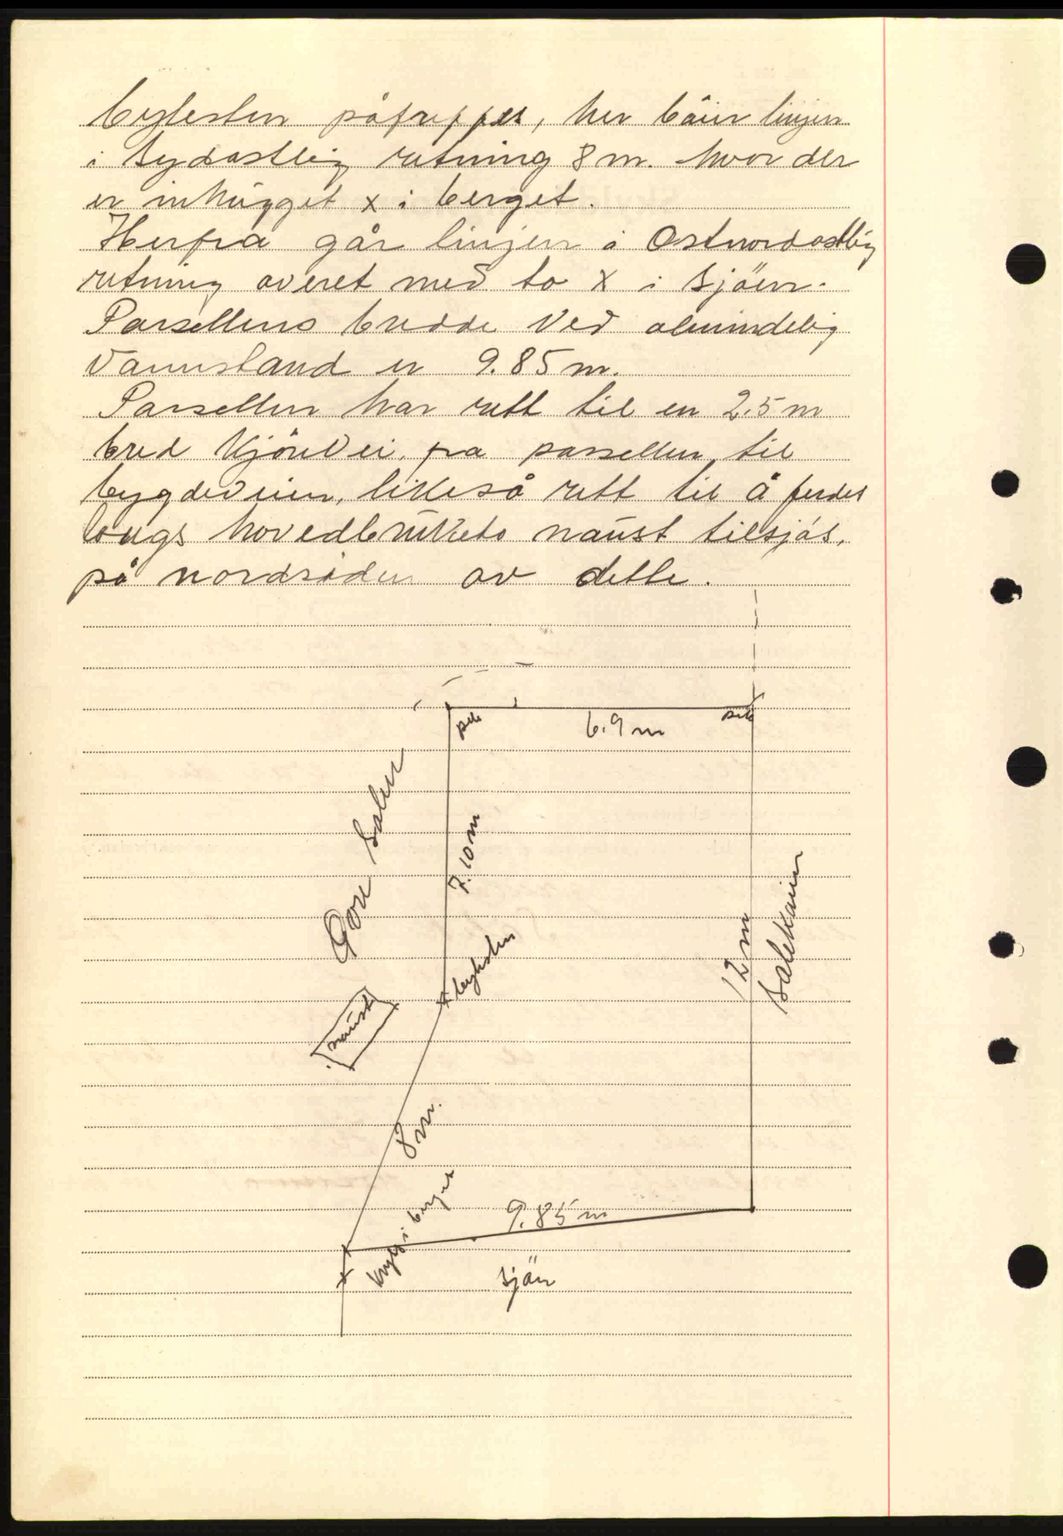 bylesten påtreffes, her bøier linjen
i sydøstlig retning 8 m. hvor der
er inhugget x i berget.
Herfra går linjen i Ostnordostlig
retning overet med to x i sjøen.
Parsellens bredde ved almindelig
vannstand er 9.85 m.
Parsellen har rett til en 2.5 m
bred kjörevei, fra parsellen til
bygdeveien, likeså rett til å ferdes
langs hovedbrukets naust tilsjøs,
på nordsiden av dette.
pel
6.9 m
pel
7.10 m
naust
12 m
8 m.
kryss i berget
9.85 m
sjön